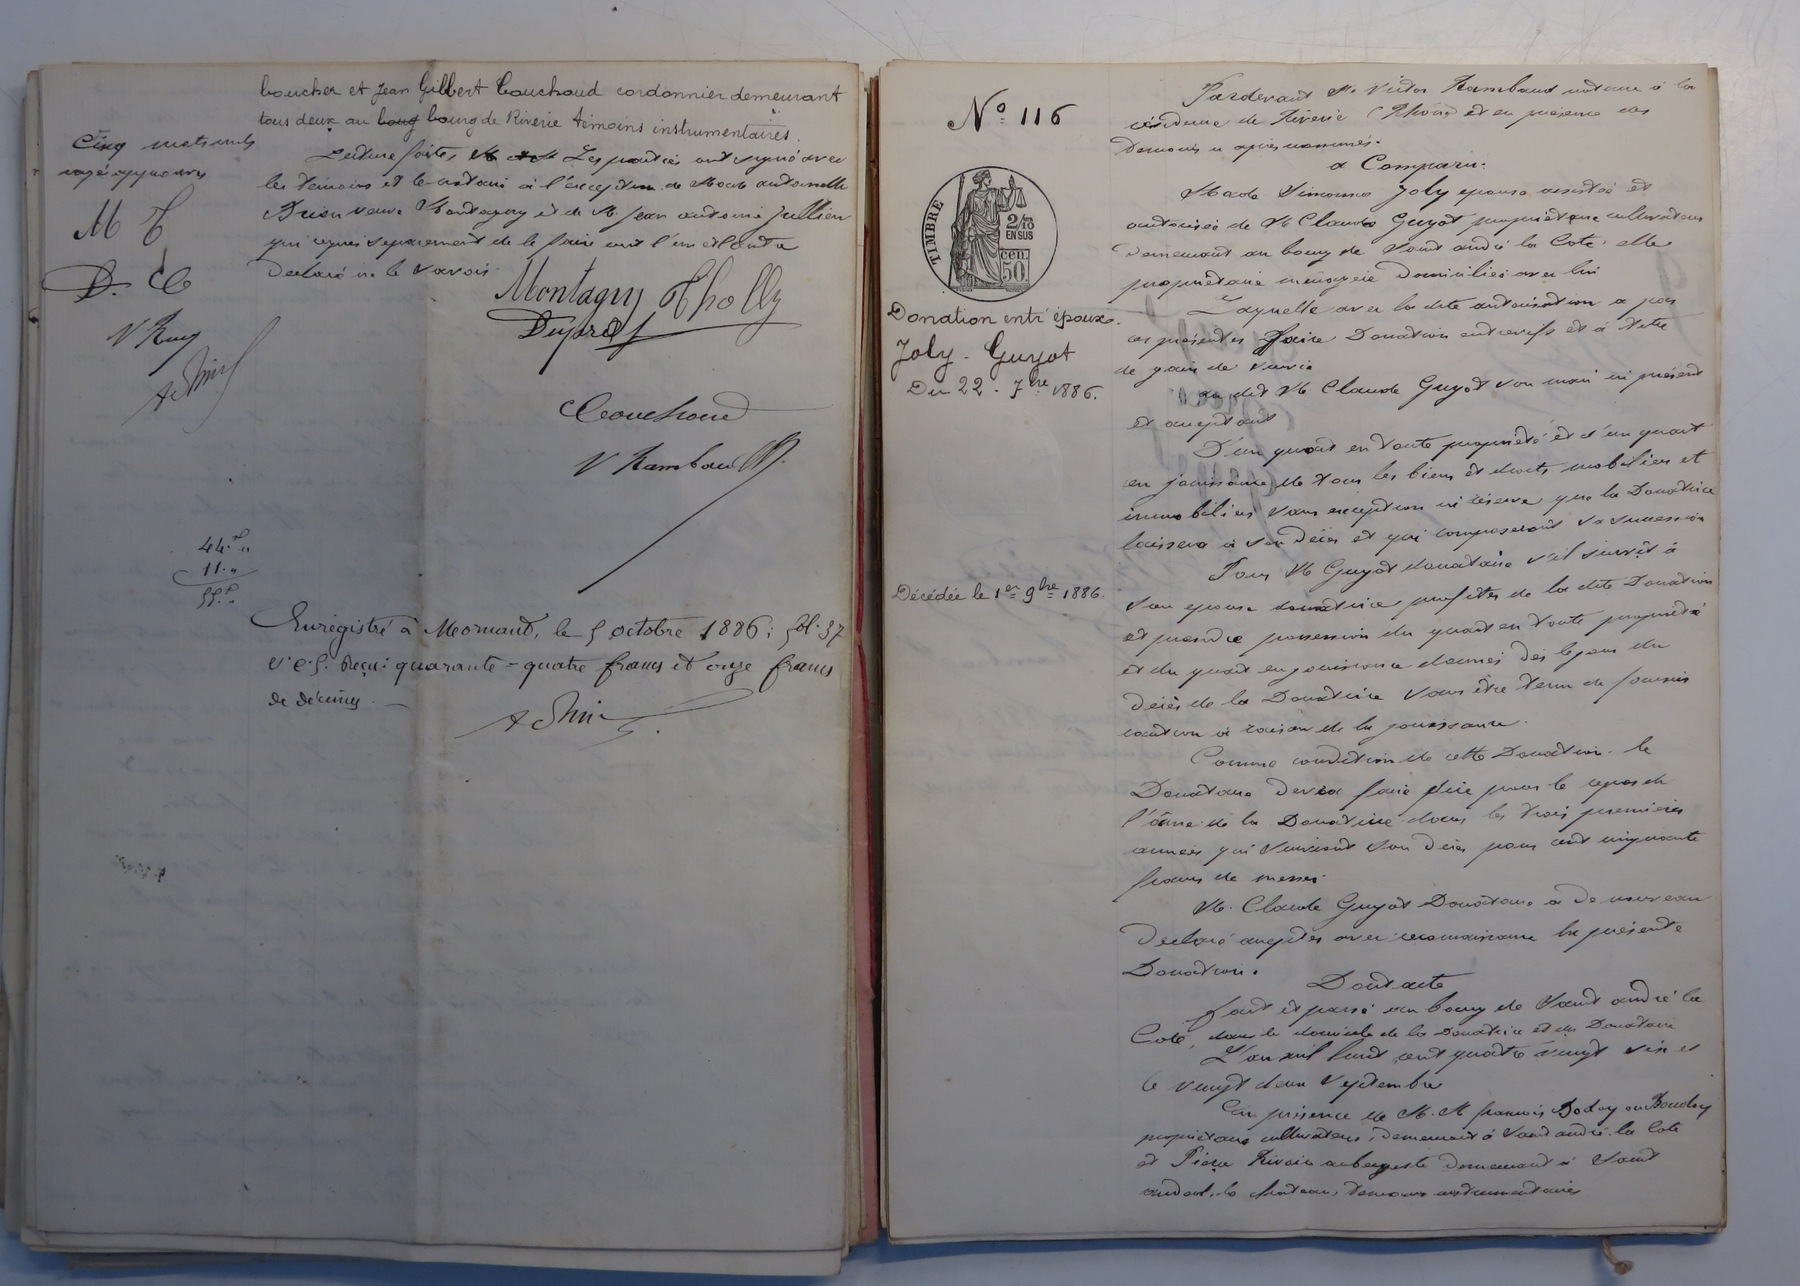 boucher et Jean Gilbert Couchoud cordonnier demeurant
tous deux au boug bourg de Riverie témoins instrumentaires.
Lecture faite, Les parties ont signé avec
les témoins et le notaire à l'exception de Made antoinette
veuve Montagny et de M. Jean antoine Jullien
qui requis séparement de le faire ont l'un et l'autre
déclaré ne le savoir.
Cinq mots nuls
rayés approuvés
M T
D. C
V Ray
Montagny Tholly
Duprat
Couchoud
V Rambaud
44. "
11. "
55. "
Enregistré à Mornant, le 5 octobre 1886, fol. 37
V. c. 5. Reçu: quarante-quatre francs et onze francs
de décimes.
N° 116
TIMBRE
2/10
EN SUS
50 cen.
Donation entr'époux.
Joly - Guyot
Du 22. 7bre 1886.
Décédée le 1er 9bre 1886.
Pardevant Me Victor Rambaud notaire à la
résidence de Riverie (Rhône) et en présence des
témoins ci après nommés.
a Comparu:
Made Joly épouse assistée et
autorisée de M. Claude Guyot propriétaire cultivateur
demeurant au bourg de Saint andré la Cote, elle
propriétaire ménagère domiciliée avec lui
Laquelle avec la dite autorisation a par
ces présentes faire Donation entrevifs et à titre
de gain de survie
au dit M. Claude Guyot son mari ici présent
et acceptant
D'un quart en toute propriété et d'un quart
en jouissance de tous les biens et droits mobiliers et
immobiliers sans exception ni réserve que la Donatrice
laissera à son décès et qui composeront sa succession
Pour M. Guyot donataire s'il survit à
son épouse donatrice, profiter de la dite Donation
et prendre possession du quart en toute propriété
et du quart en jouissance donnés dès le jour du
décès de la Donatrice sans être tenu de fournir
caution à raison de la jouissance.
Comme condition de cette Donation, le
Donataire devra faire dire pour le repos de
l'âme de la Donatrice dans les trois premières
années qui suivront son décès pour cent cinquante
francs de messes.
M. Claude Guyot Donataire a de nouveau
déclaré accepter avec reconnaissance la présente
Donation.
Dont acte
fait et passé au bourg de Saint andré la
Cote, dans le domicile de la Donatrice et du Donataire
L'an mil huit cent quatre vingt six et
le vingt deux Septembre
En présence de M. M françois Boday ou Bouday
propriétaire cultivateur, demeurant à Saint andré la Cote
et Pierre Rivoire aubergiste demeurant à Saint
andéol le château, témoins instrumentaires